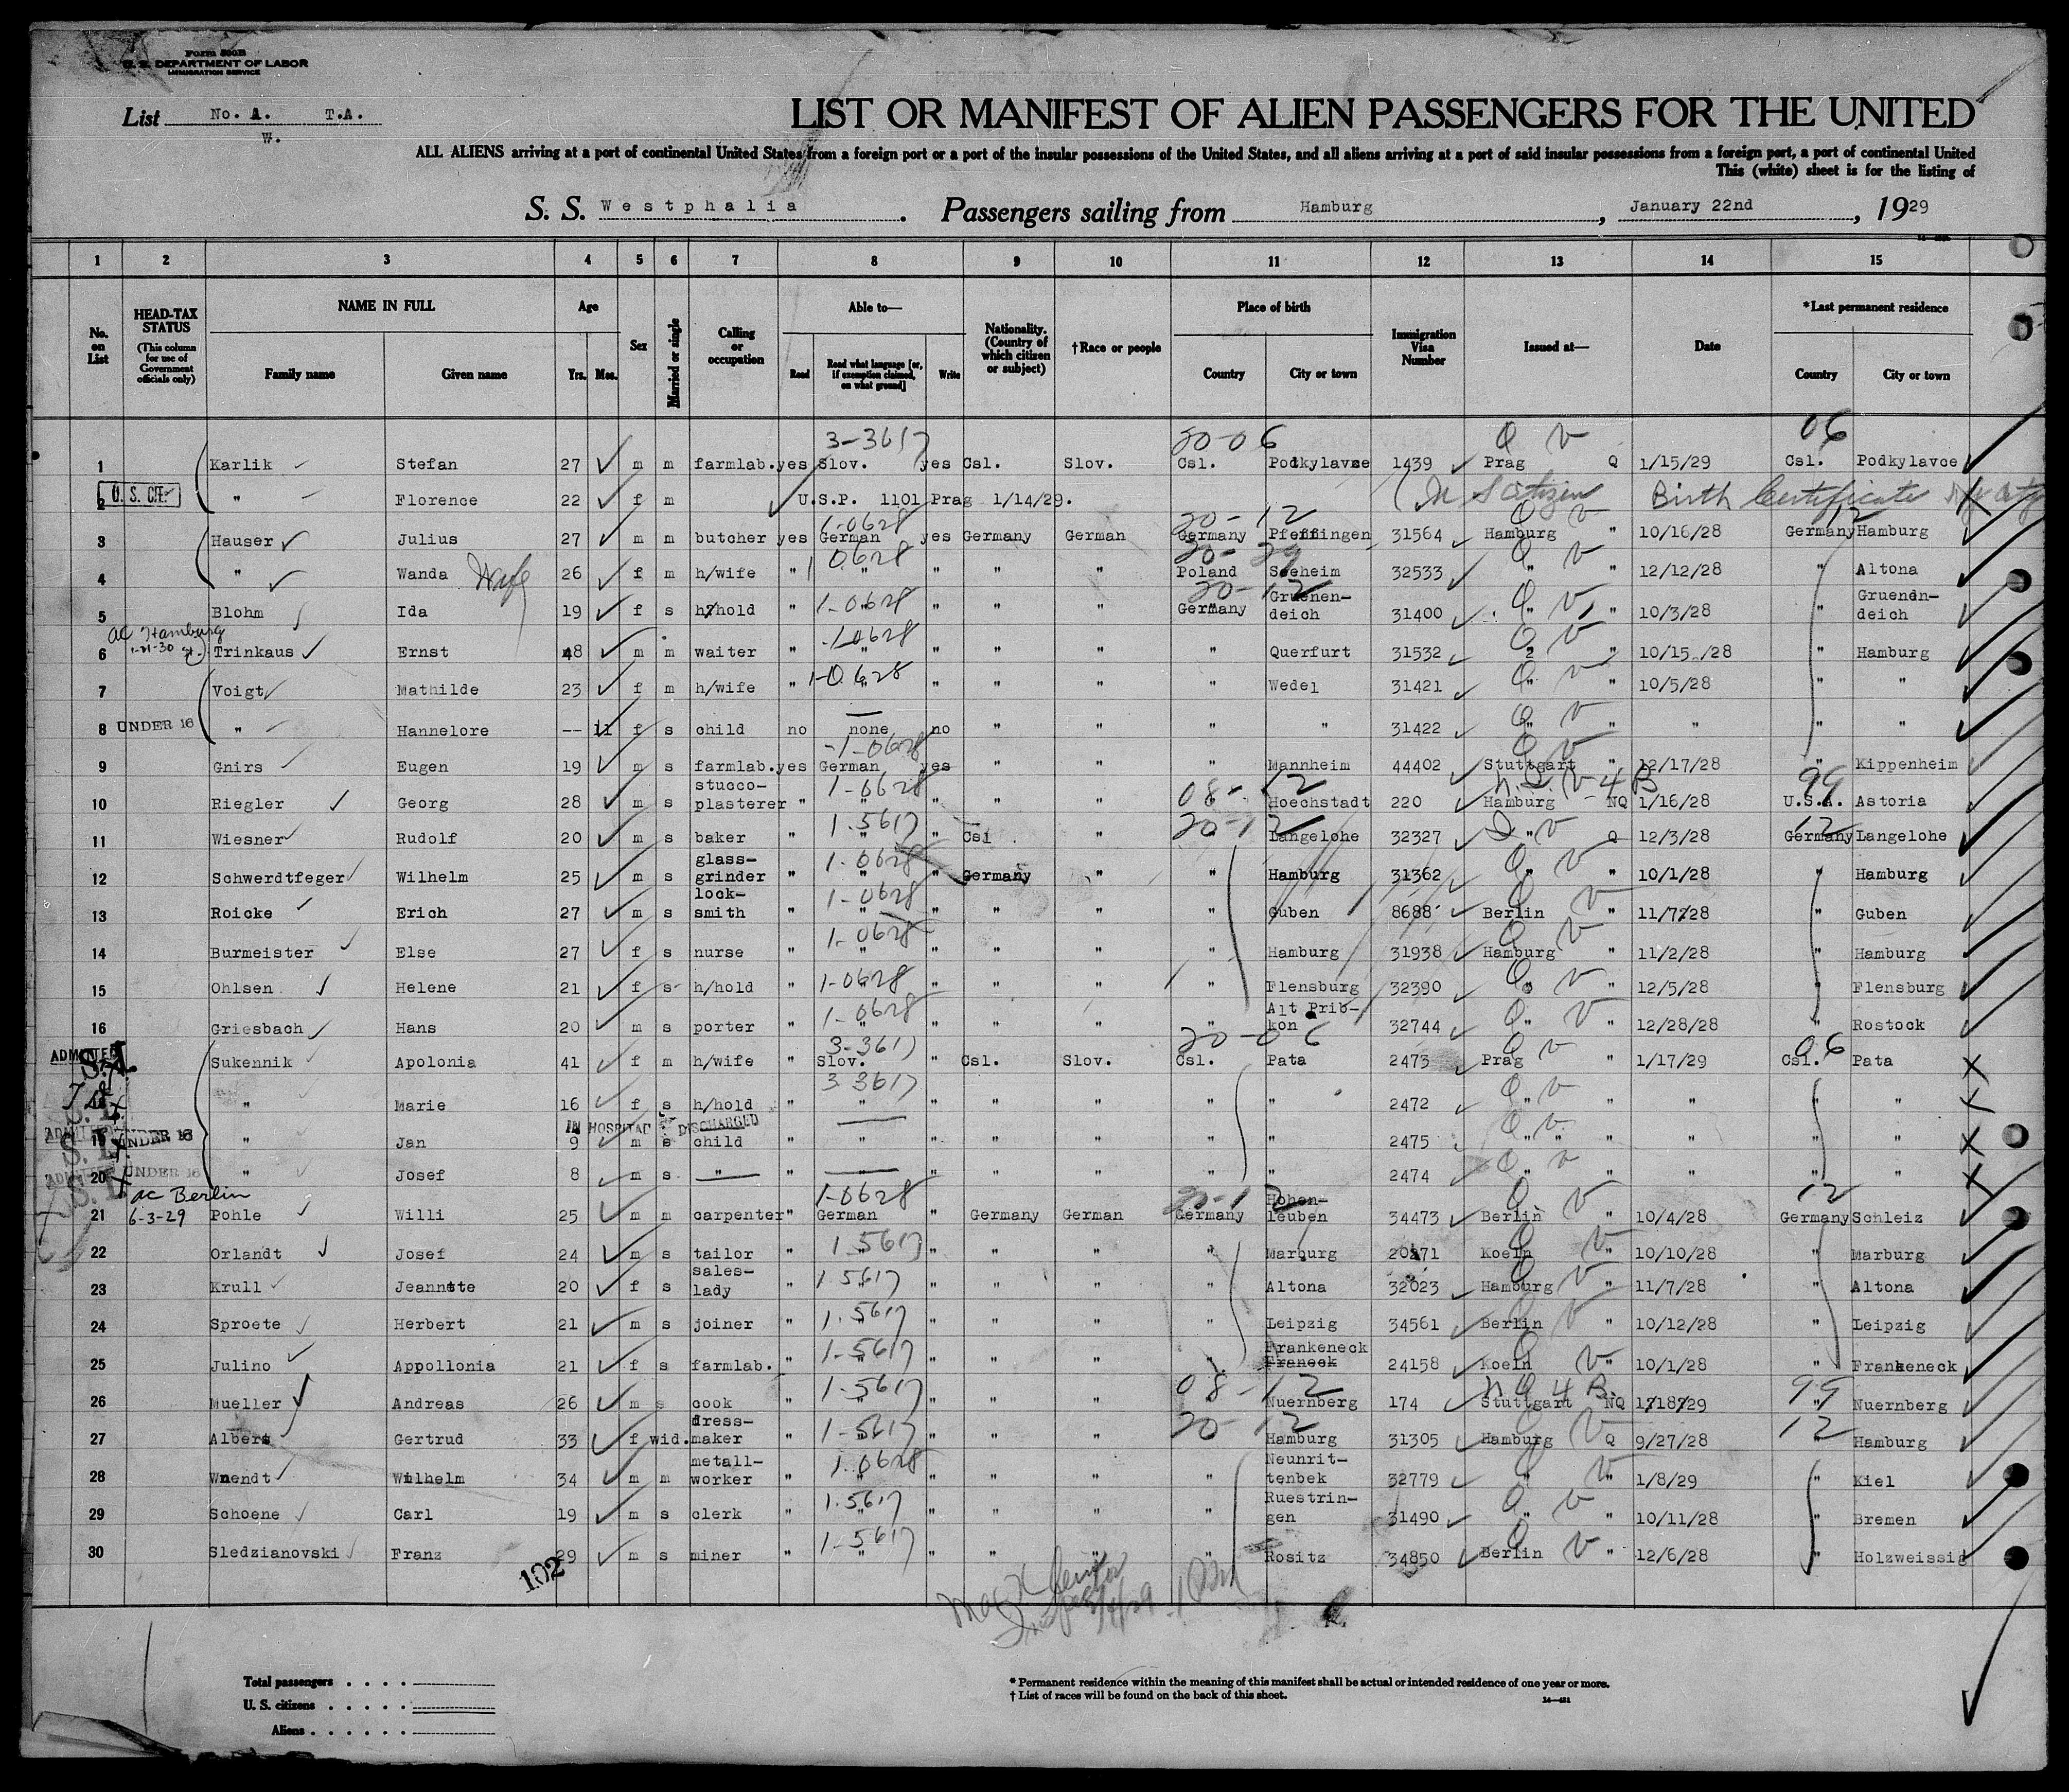 Form 500B
U. S. DEPARTMENT OF LABOR
IMMIGRATION SERVICE
List No. A. T.A.
W.
LIST OR MANIFEST OF ALIEN PASSENGERS FOR THE UNITED
ALL ALIENS arriving at a port of continental United States from a foreign port or a port of the insular possessions of the United States, and all aliens arriving at a port of said insular possessions from a foreign port, a port of continental United
This (white) sheet is for the listing of
S. S. Westphalia. Passengers sailing from Hamburg, January 22nd, 1929
1 2 3 4 5 6 7 8 9 10 11 12 13 14 15
No. on List
HEAD-TAX STATUS (This column for use of Government officials only)
NAME IN FULL
Family name Given name
Age
Yrs. Mos.
Sex
Married or single
Calling or occupation
Able to—
Read Read what language [or, if exemption claimed, on what ground] Write
Nationality. (Country of which citizen or subject)
†Race or people
Place of birth
Country City or town
Immigration Visa Number
Issued at—
Date
*Last permanent residence
Country City or town
3-3617 20-06 Q V 06
1 Karlik Stefan 27 m m farmlab. yes Slov. yes Csl. Slov. Csl. Podkylavce 1439 Prag Q 1/15/29 Csl. Podkylavce
2 U. S. CIT. " Florence 22 f m U.S.P. 1101 Prag 1/14/29. Citizen Birth Certificate
1-0628 20-12 Q V 12
3 Hauser Julius 27 m m butcher yes German yes Germany German Germany Pfeffingen 31564 Hamburg " 10/16/28 Germany Hamburg
0628 Q V
4 " Wanda Wife 26 f m h/wife " " " " " Poland Seeheim 32533 " " 12/12/28 " Altona
1-0628 20-12 Q V
5 Blohm Ida 19 f s h/hold " " " " " Germany Gruenen-deich 31400 " " 10/3/28 " Gruendn-deich
ac Hamburg 1-21-30
1-0628 Q V
6 Trinkaus Ernst 48 m m waiter " " " " " " Querfurt 31532 " " 10/15/28 " Hamburg
1-0628 Q V
7 Voigt Mathilde 23 f m h/wife " " " " " " Wedel 31421 " " 10/5/28 " "
Q V
8 UNDER 16 " Hannelore -- 11 f s child no none no " " " " 31422 " " " " "
1-0628 Q V
9 Gnirs Eugen 19 m s farmlab. yes German yes " " " Mannheim 44402 Stuttgart " 12/17/28 " Kippenheim
1-0628 08-12 N.Q. V-4B 99
10 Riegler Georg 28 m s stucco-plasterer " " " " " " Hoechstadt 220 Hamburg NQ 1/16/28 U.S.A. Astoria
1-5617 20-12 Q V 12
11 Wiesner Rudolf 20 m s baker " " " Csl. " " Langelohe 32327 " Q 12/3/28 Germany Langelohe
1-0628 Q V
12 Schwerdtfeger Wilhelm 25 m s glass-grinder " " " Germany " " Hamburg 31362 " " 10/1/28 " Hamburg
1-0628 Q V
13 Roicke Erich 27 m s lock-smith " " " " " " Guben 8688 Berlin " 11/7/28 " Guben
1-0628 Q V
14 Burmeister Else 27 f s nurse " " " " " " Hamburg 31938 Hamburg " 11/2/28 " Hamburg
1-0628 Q V
15 Ohlsen Helene 21 f s h/hold " " " " " " Flensburg 32390 " " 12/5/28 " Flensburg
1-0628 Q V
16 Griesbach Hans 20 m s porter " " " " " " Alt Prib-kon 32744 " " 12/28/28 " Rostock
3-3617 20-06 Q V 06
ADMITTED S.I. Sukennik Apolonia 41 f m h/wife " Slov. " Csl. Slov. Csl. Pata 2473 Prag " 1/17/29 Csl. Pata
3-3617 Q V
" Marie 16 f s h/hold " " " " " " " 2472 " " " " "
IN HOSPITAL DISCHARGED
ADMITTED S.I. UNDER 16 " Jan 9 m s child " " " " " " " 2475 " " " " " "
20 ADMITTED S.I. UNDER 16 " Josef 8 m s " " " " " " " " 2474 " " " " "
ac Berlin 6-3-29
1-0628 20-12 Q V 12
21 Pohle Willi 25 m m carpenter " German " Germany German Germany Hohen-leuben 34473 Berlin " 10/4/28 Germany Schleiz
1-5617 Q V
22 Orlandt Josef 24 m s tailor " " " " " " Marburg 20371 Koeln " 10/10/28 " Marburg
1-5617 Q V
23 Krull Jeannette 20 f s sales-lady " " " " " " Altona 32023 Hamburg " 11/7/28 " Altona
1-5617 Q V
24 Sproete Herbert 21 m s joiner " " " " " " Leipzig 34561 Berlin " 10/12/28 " Leipzig
1-5617 Q V
25 Julino Appollonia 21 f s farmlab. " " " " " " Frankeneck Franeck 24158 Koeln " 10/1/28 " Frankeneck
1-5617 08-12 N Q 4 B. 99
26 Mueller Andreas 26 m s cook " " " " " " Nuernberg 174 Stuttgart NQ 1/18/29 " Nuernberg
1-5617 20-12 Q V 12
27 Albers Gertrud 33 f wid. dress-maker " " " " " " Hamburg 31305 Hamburg Q 9/27/28 " Hamburg
1-0628 V
28 Wnendt Wilhelm 34 m m metall-worker " " " " " " Neunrit-tenbek 32779 " " 1/8/29 " Kiel
1-5617 Q V
29 Schoene Carl 19 m s clerk " " " " " " Ruestrin-gen 31490 " " 10/11/28 " Bremen
1-5617 Q V
30 Sledzianovski Franz 29 m s miner " " " " " " Rositz 34850 Berlin " 12/6/28 " Holzweissig
102
Total passengers . . . .
U. S. citizens . . . . .
Aliens . . . . . .
* Permanent residence within the meaning of this manifest shall be actual or intended residence of one year or more.
† List of races will be found on the back of this sheet.
14—481